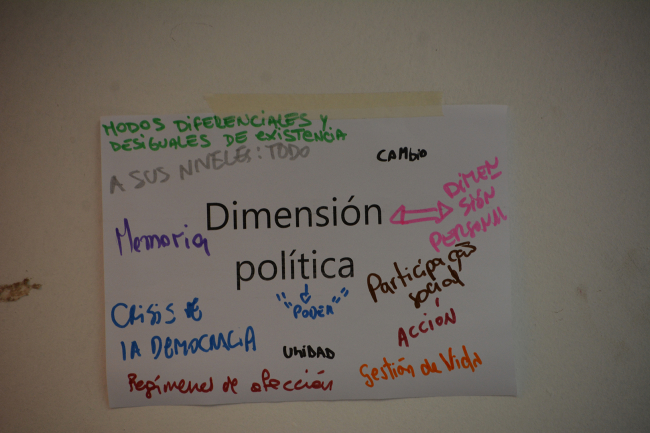 MODOS DIFERENCIALES Y
DESIGUALES DE EXISTENCIA
A SUS NIVELES: TODO
CAMBIO
DIMEN
SIÓN
PERSONAL
Memoria
Dimensión
política
"PODER"
Participação
social
CRISIS DE
LA DEMOCRACIA
ACCIÓN
UNIDAD
Gestión da Vida
Regímenes de afección